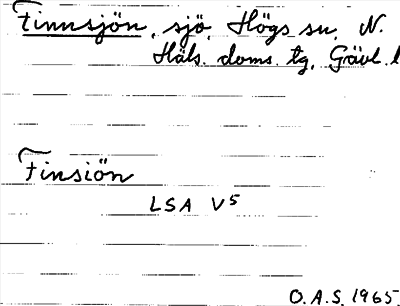 Finnsjön, sjö, Högs sn, N.
Häls. doms. tg, Gävl. l
Finsiön
LSA V5
O.A.S. 1965